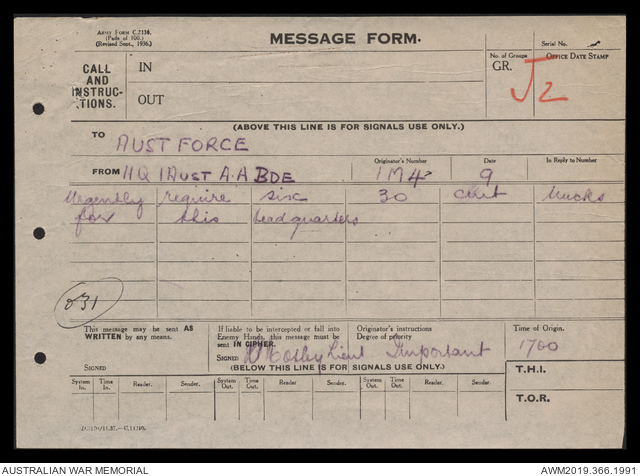 ARMY FORM C.2136.
(Pads of 100.)
(Revised Sept., 1936.)
MESSAGE FORM.
Serial No.
CALL AND INSTRUCTIONS.
IN
OUT
No. of Groups
GR.
OFFICE DATE STAMP
J2
(ABOVE THIS LINE IS FOR SIGNALS USE ONLY.)
TO AUST FORCE
FROM HQ 1 AUST A.A BDE
Originator's Number
1M4
Date
9
In Reply to Number
Urgently require six 30 cwt trucks
for this headquarters
031
This message may be sent AS WRITTEN by any means.
SIGNED
If liable to be intercepted or fall into Enemy Hands, this message must be sent IN CIPHER.
SIGNED Lieut
Originator's instructions
Degree of priority
Important
Time of Origin.
1700
(BELOW THIS LINE IS FOR SIGNALS USE ONLY.)
T.H.I.
System In. Time In. Reader. Sender. System Out. Time Out. Reader Sender. System Out. Time Out. Reader. Sender.
T.O.R.
AUSTRALIAN WAR MEMORIAL
AWM2019.366.1991